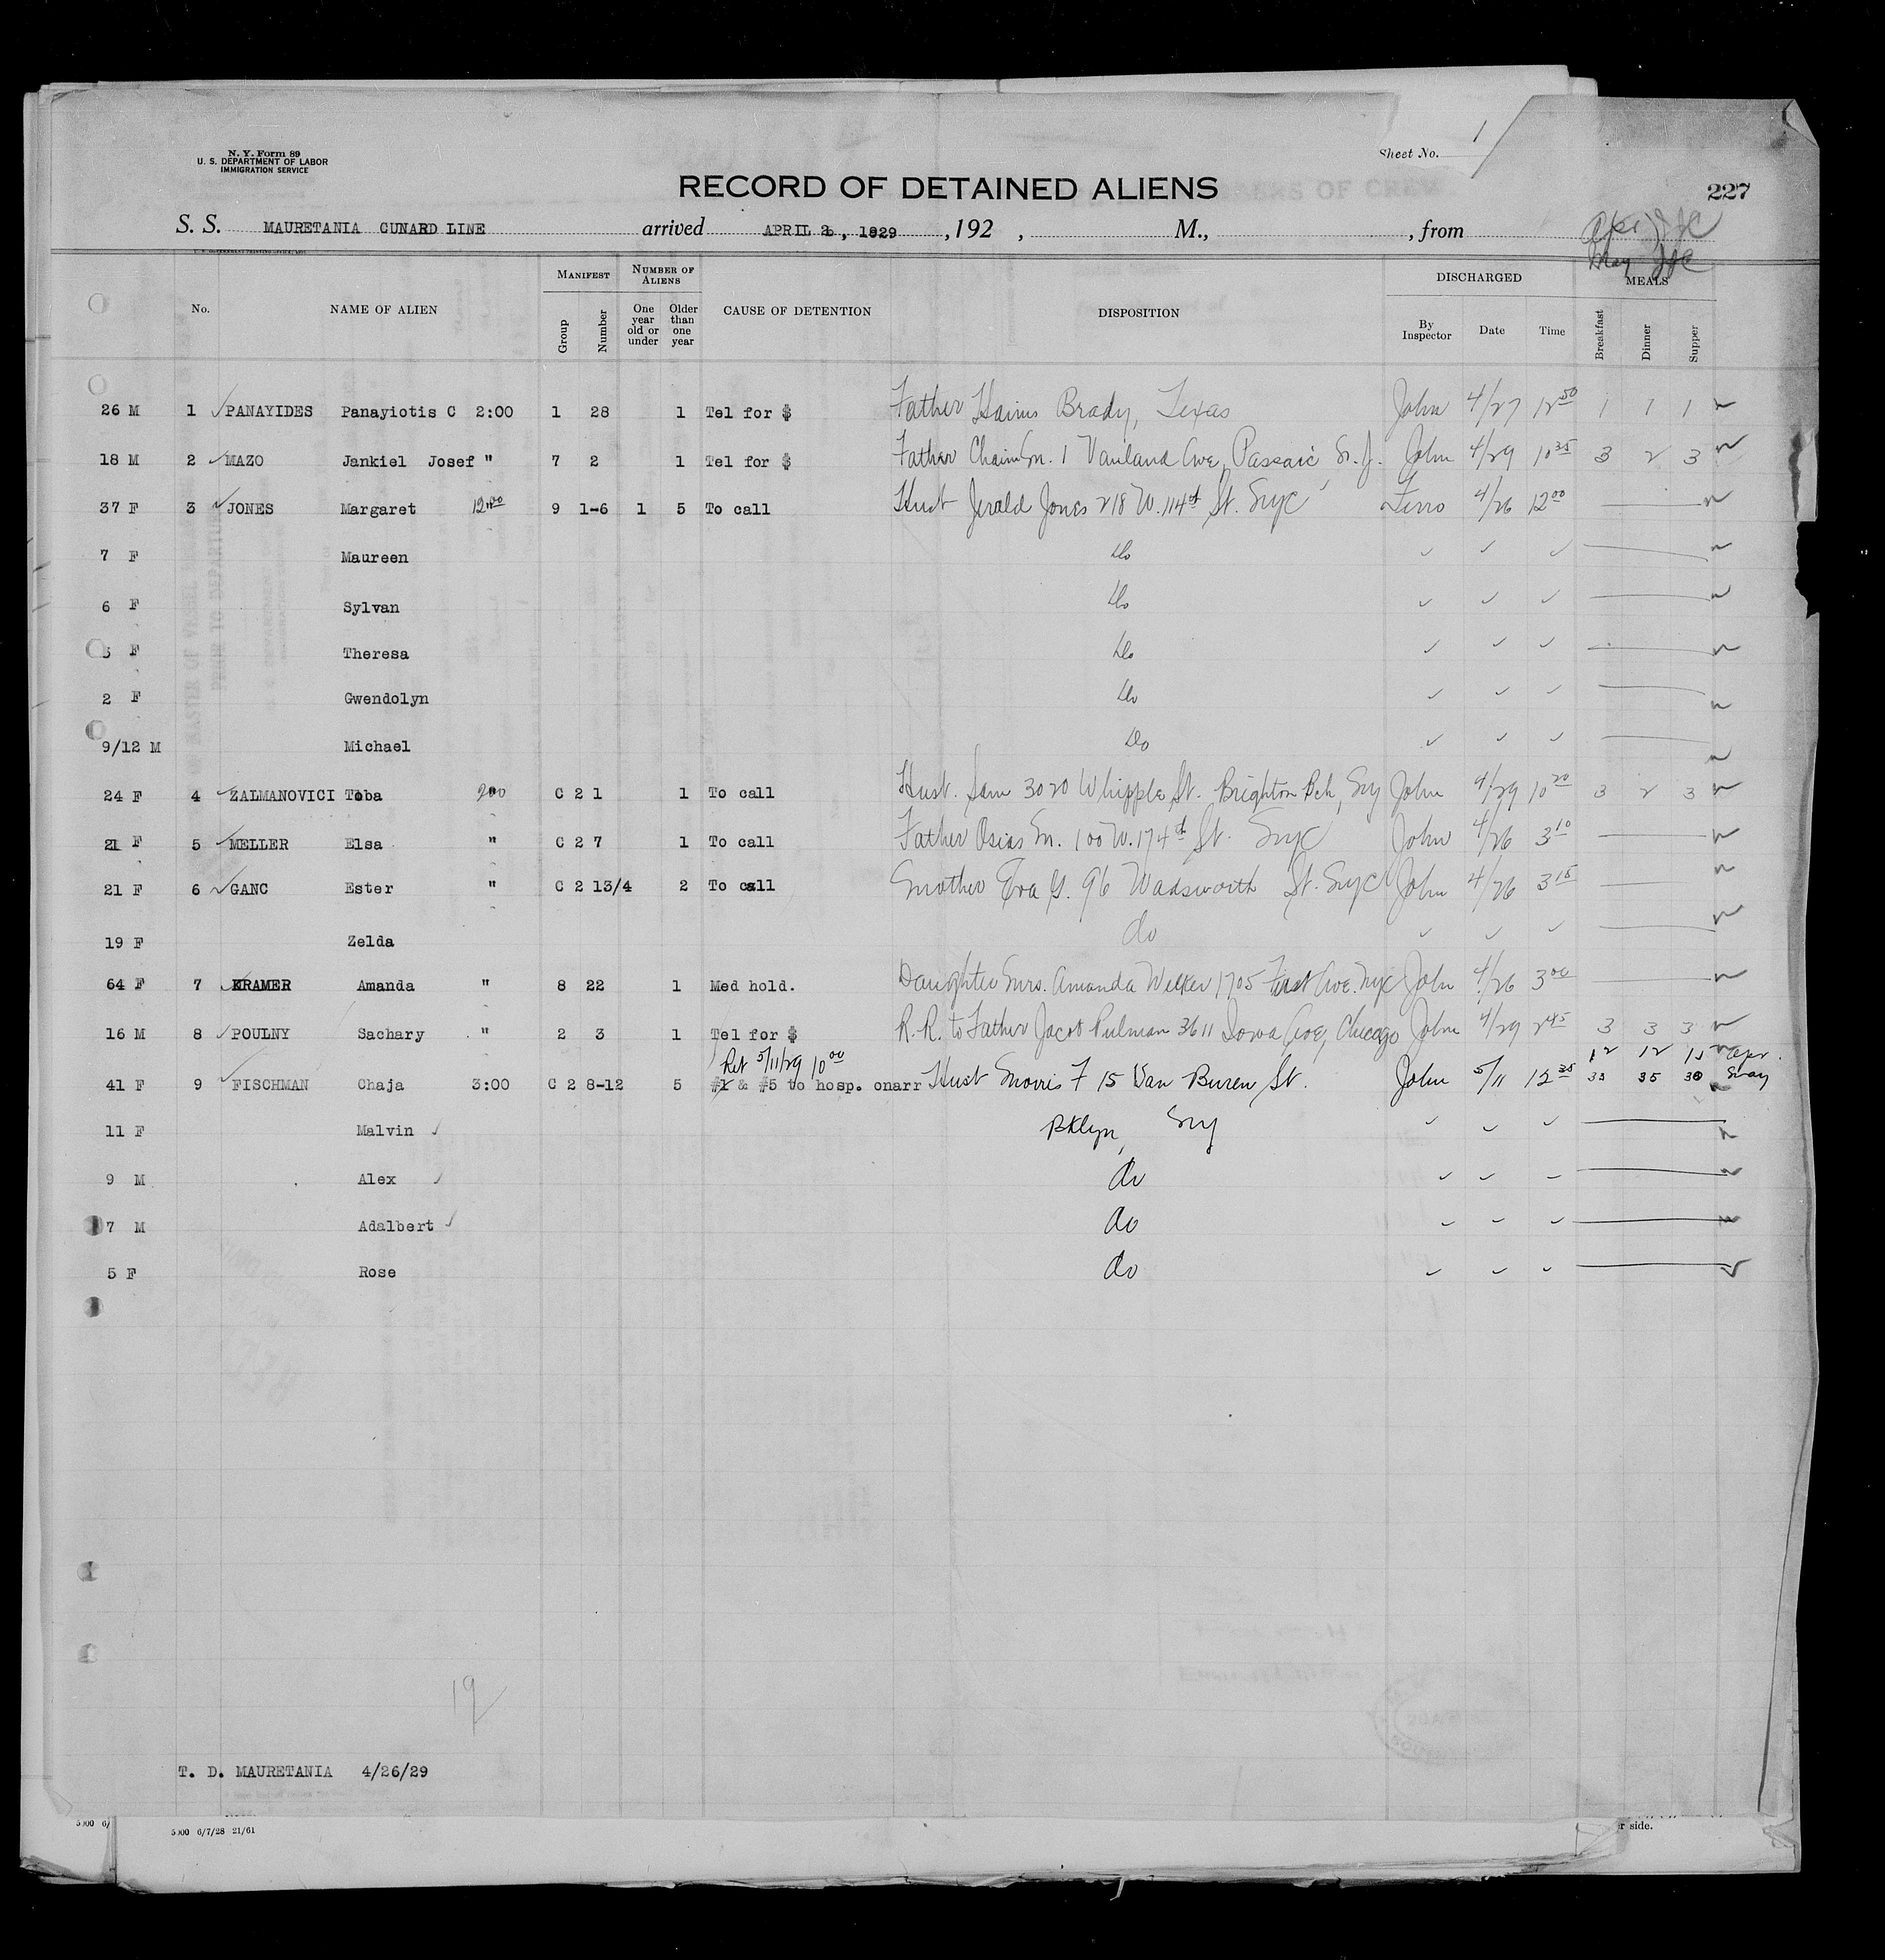 N. Y. Form 89
U. S. DEPARTMENT OF LABOR
IMMIGRATION SERVICE
Sheet No. 1
RECORD OF DETAINED ALIENS
227
S. S. MAURETANIA CUNARD LINE arrived APRIL 26, 1929, 192 , M., , from
May
No. NAME OF ALIEN MANIFEST Group Number NUMBER OF ALIENS One year old or under Older than one year CAUSE OF DETENTION DISPOSITION DISCHARGED By Inspector Date Time MEALS Breakfast Dinner Supper
26 M 1 PANAYIDES Panayiotis C 2:00 1 28 1 Tel for $ Father Brady, Texas John 4/27 12 50 1 1 1
18 M 2 MAZO Jankiel Josef " 7 2 1 Tel for $ Father Chaim M. 1 Ave, Passaic, N. J. John 4/29 10 35 3 2 3
37 F 3 JONES Margaret 12 00 9 1-6 1 5 To call Hust Jerald Jones 218 W. 114th St. NyC Ferro 4/26 12 00
7 F Maureen Do
6 F Sylvan Do
5 F Theresa Do
2 F Gwendolyn Do
9/12 M Michael Do
24 F 4 ZALMANOVICI Toba 2 00 C 2 1 1 To call Hust. Sam 3020 Whipple St. Brighton Bch, Ny John 4/29 10 20 3 2 3
21 F 5 MELLER Elsa " C 2 7 1 To call Father Osias M. 100 W. 174th St. NyC John 4/26 3 10
21 F 6 GANC Ester " C 2 13/4 2 To call Mother Eva G. 96 Wadsworth St. NyC John 4/26 3 15
19 F Zelda do
64 F 7 KRAMER Amanda " 8 22 1 Med hold. Daughter Mrs. Amanda 1705 First Ave. NyC John 4/26 3 00
16 M 8 POULNY Sachary " 2 3 1 Tel for $ R.R. to Father Jacob Pulman 3611 Iowa Ave, Chicago John 4/29 2 45 3 3 3
Ret 5/11/29 10 00 12 12 15 Apr.
41 F 9 FISCHMAN Chaja 3:00 C 2 8-12 5 #1 & #5 to hosp. onarr Hust Morris F 15 Van Buren St. John 5/11 12 35 33 35 30 May
11 F Malvin Bklyn, Ny
9 M Alex do
7 M Adalbert do
5 F Rose do
19
T. D. MAURETANIA 4/26/29
5000 6/7/28 21/61
r side.